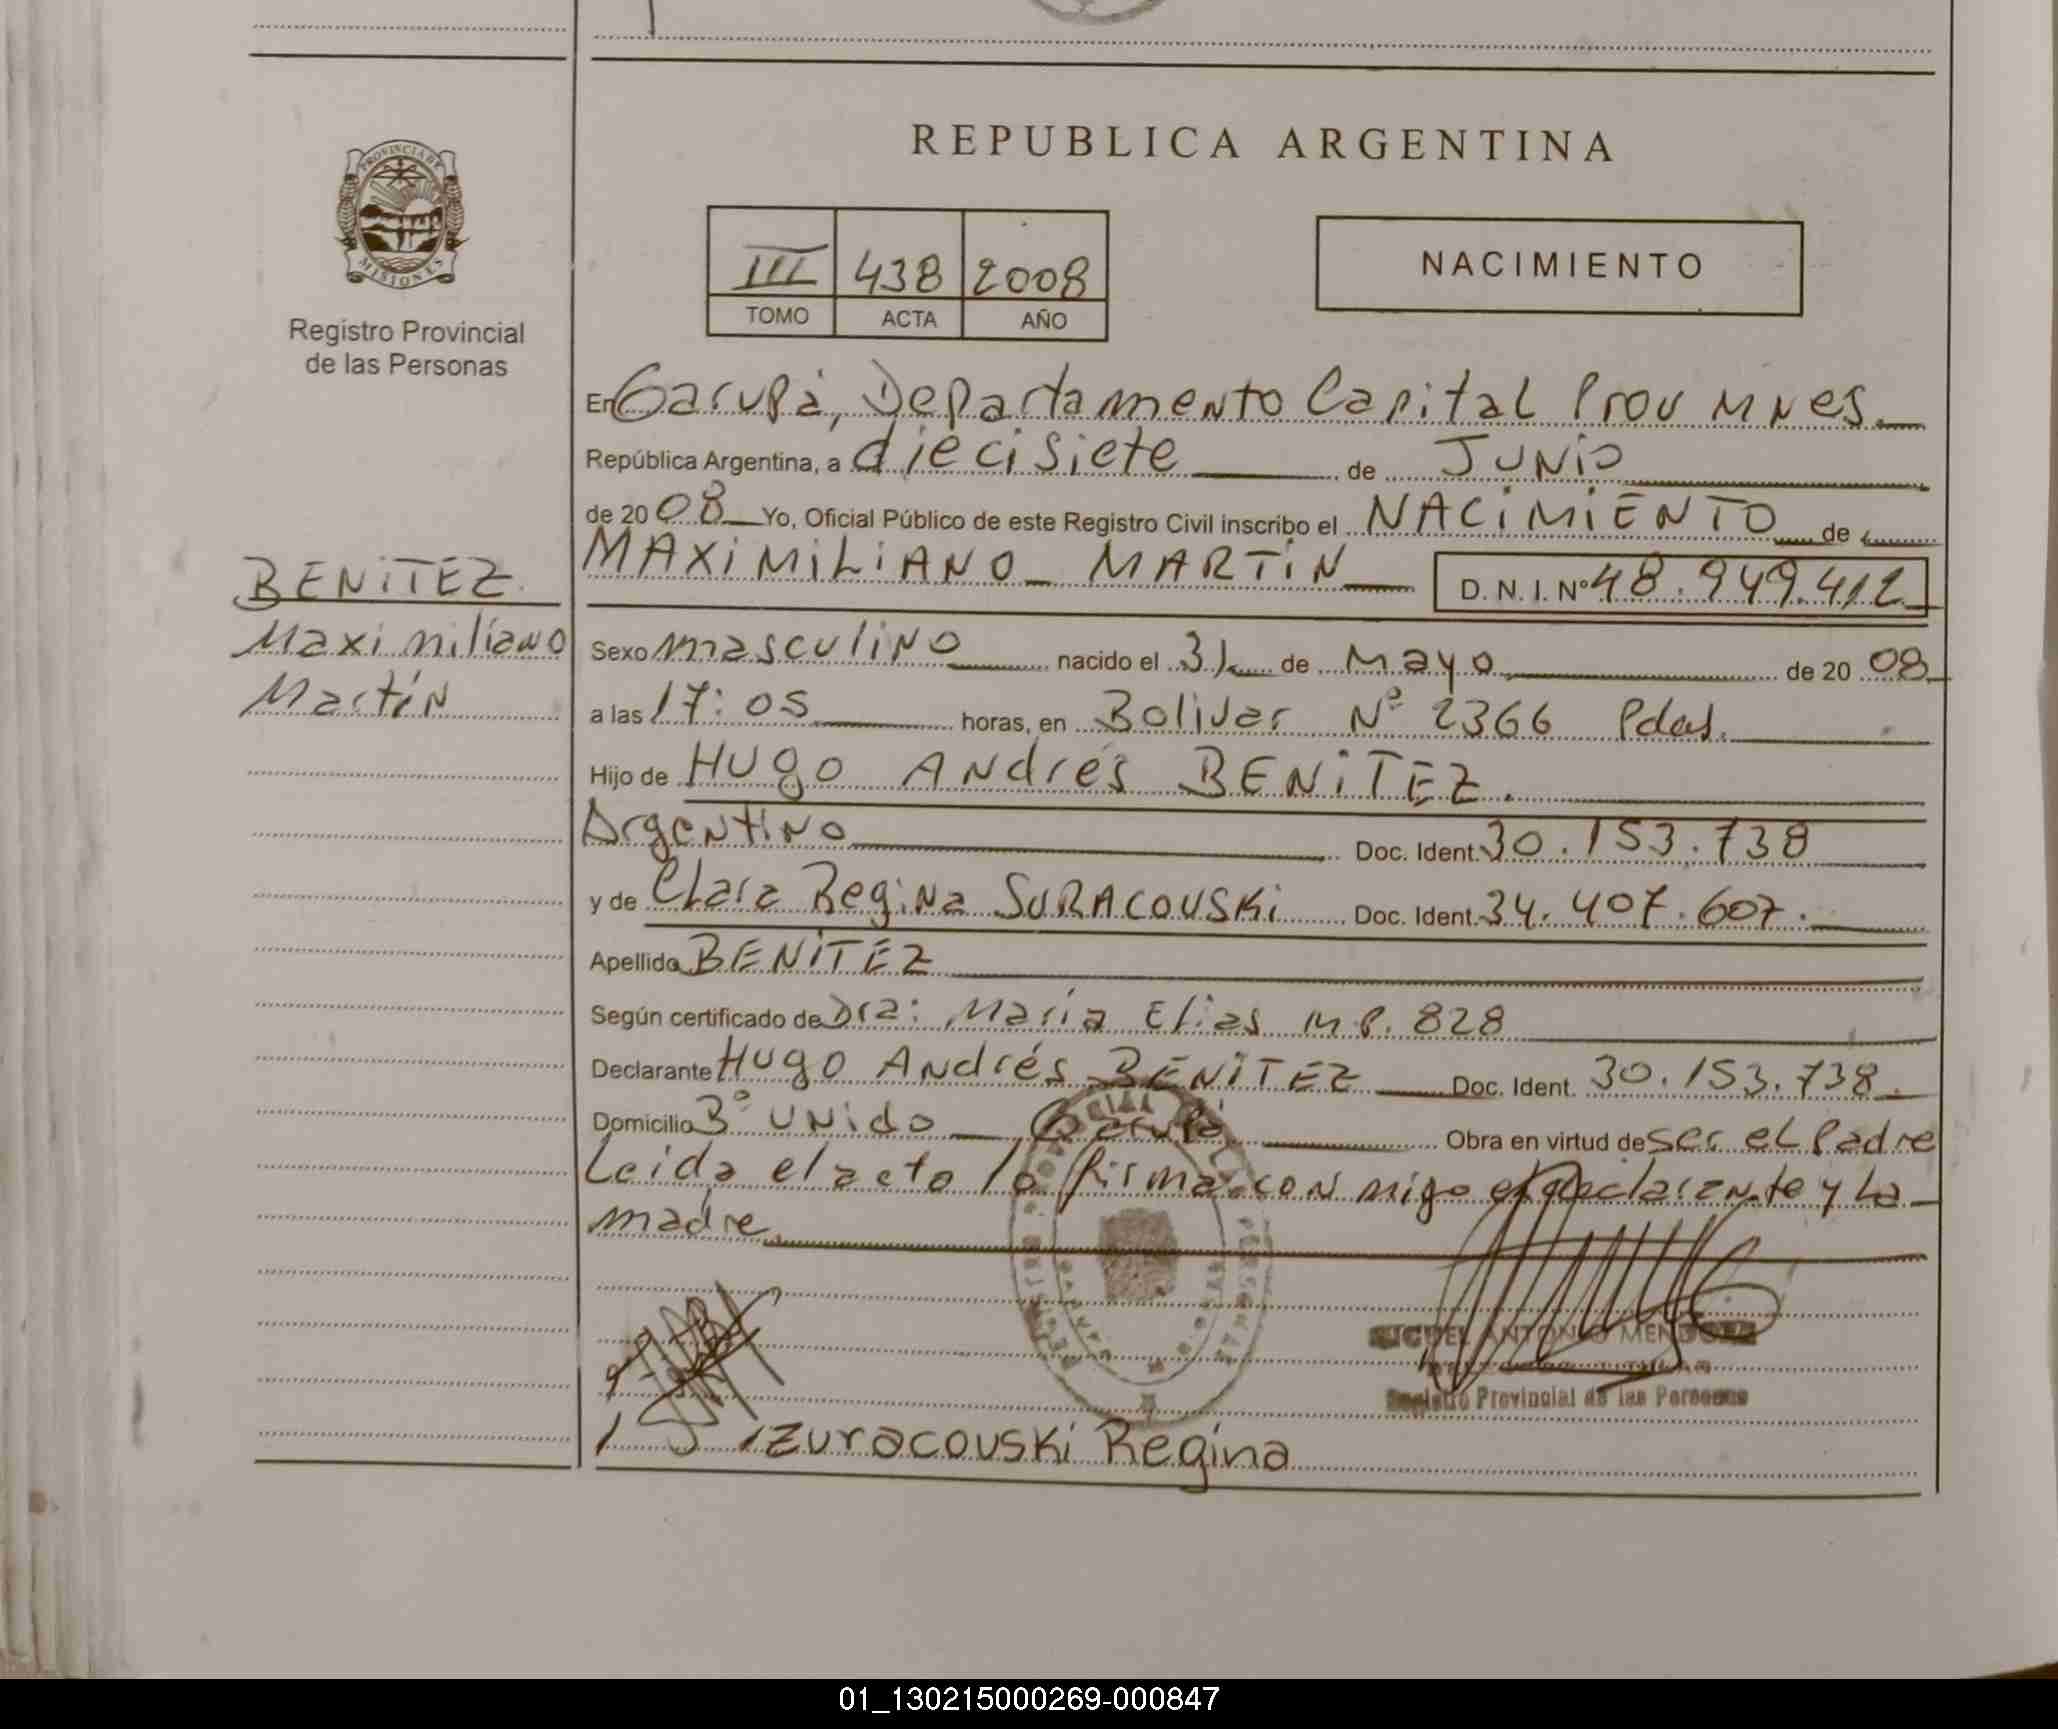 REPUBLICA ARGENTINA
PROVINCIA DE
MISIONES
Registro Provincial
de las Personas
III 438 2008
TOMO ACTA AÑO
NACIMIENTO
En Garupá, Departamento Capital Prov Mnes.
República Argentina, a diecisiete de Junio
de 2008 Yo, Oficial Público de este Registro Civil inscribo el NACIMIENTO de
MAXIMILIANO MARTIN D. N. I. Nº 48.949.412
BENITEZ
Maximiliano
Martín
Sexo masculino nacido el 31 de Mayo de 20 08
a las 17:05 horas, en Bolivar Nº 2366 Pdas.
Hijo de Hugo Andrés BENITEZ.
Argentino Doc. Ident. 30.153.738
y de Clara Regina SURACOUSKI Doc. Ident. 34.407.607.
Apellido BENITEZ
Según certificado de Dra: María Elias M.P. 828
Declarante Hugo Andrés BENITEZ Doc. Ident. 30.153.738.
Domicilio Bº Unido Garupá Obra en virtud de ser el Padre
Leida el acto lo firma con migo el declarante y La
madre
MIGUEL ANTONIO MENDOZA
Registro Provincial de las Personas
Zuracouski Regina
01_130215000269-000847